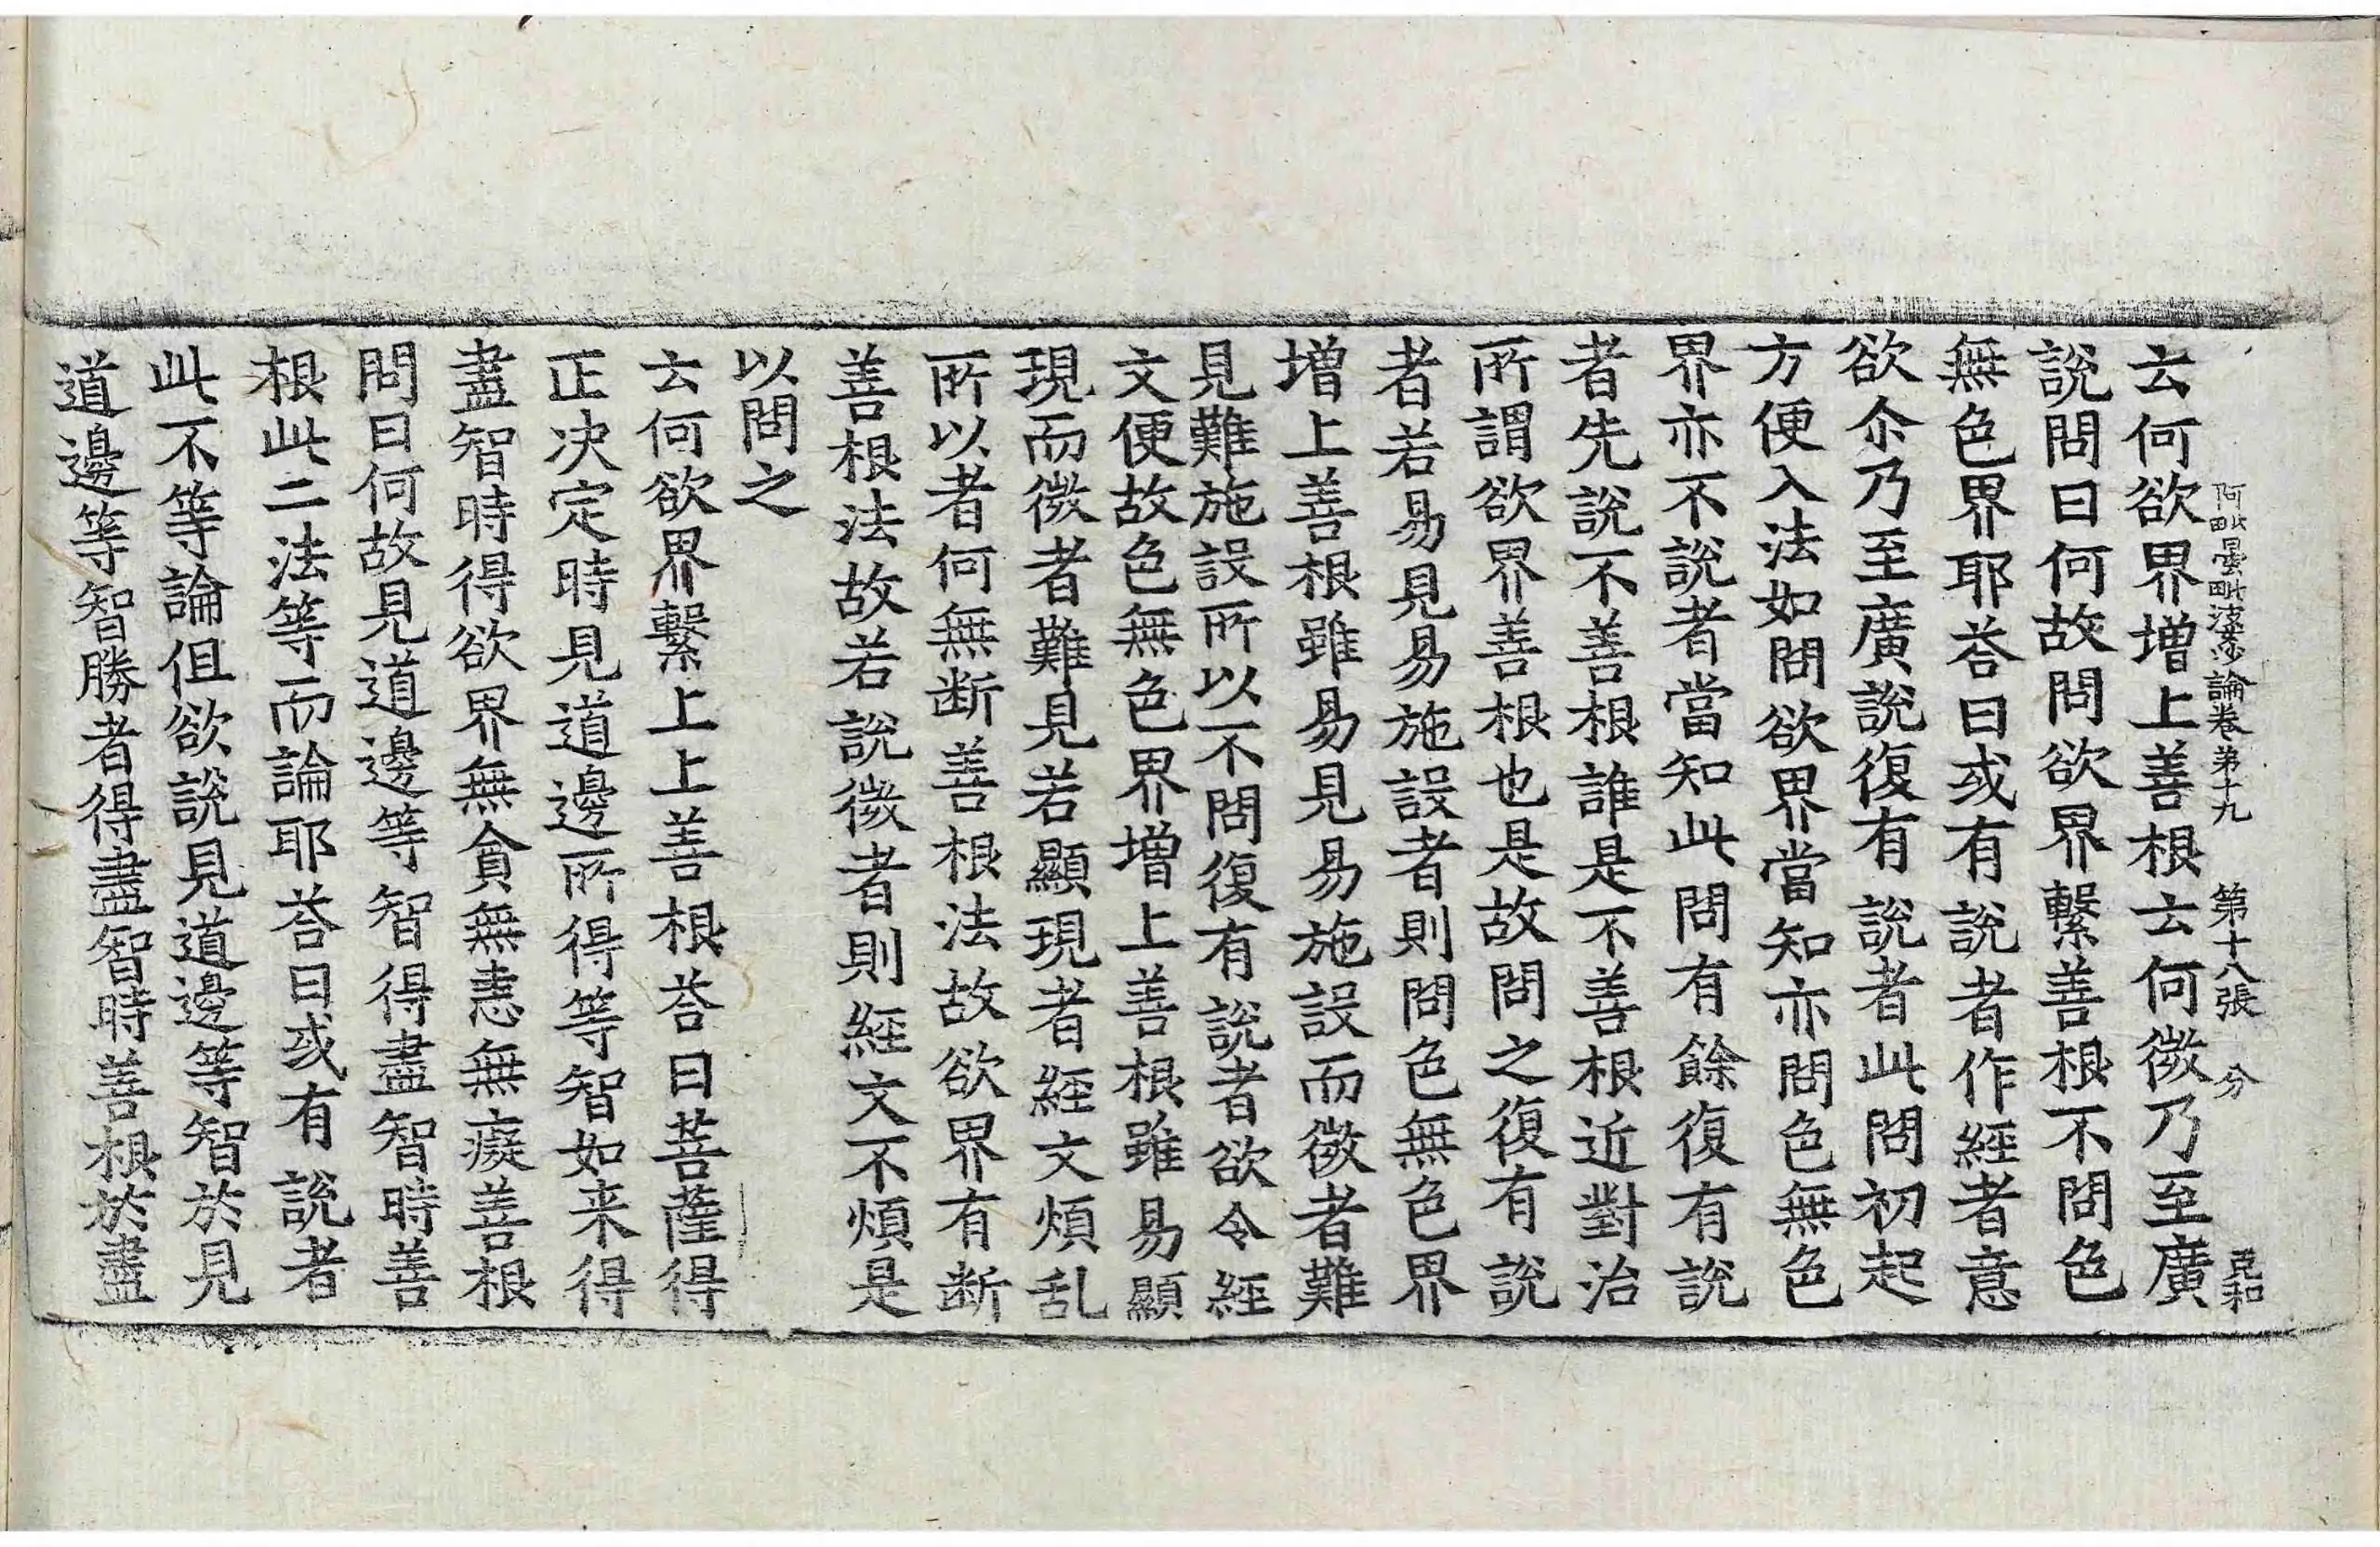 阿毗曇毗婆沙論卷第十九 第十八張 分
云何欲界增上善根云何微乃至廣
說問曰何故問欲界繫善根不問色
無色界耶荅曰或有說者作經者意
欲尒乃至廣說復有說者此問初起
方便入法如問欲界當知亦問色無色
界亦不說者當知此問有餘復有說
者先說不善根誰是不善根近對治
所謂欲界善根也是故問之復有說
者若易見易施設者則問色無色界
增上善根雖易見易施設而微者難
見難施設所以不問復有說者欲令經
文便故色無色界增上善根雖易顯
現而微者難見若顯現者經文煩乱
所以者何無断善根法故欲界有断
善根法故若說微者則經文不煩是
以問之
云何欲界繫上上善根荅曰菩薩得
正決定時見道邊所得等智如来得
盡智時得欲界無貪無恚無癡善根
問曰何故見道邊等智得盡智時善
根此二法等而論耶荅曰或有說者
此不等論但欲說見道邊等智於見
道邊等智勝者得盡智時善根於盡